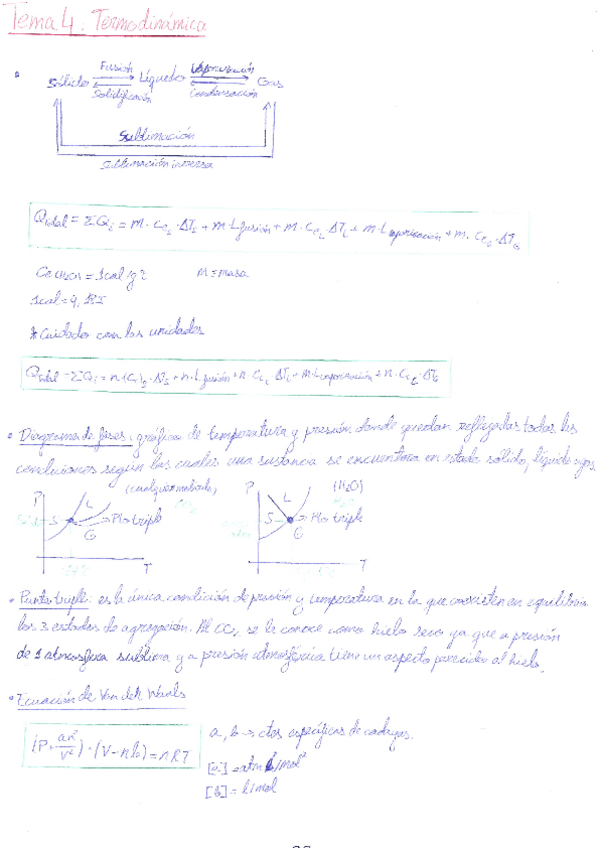 Tema 4. Termodinámica
Fusión Vaporización
Sólido Líquido Gas
Solidificación Condensación
Sublimación
Sublimación inversa
Qtotal = ΣQi = m · Ce · ΔTs + m · Lfusión + m · CeL · ΔTL + m · Lvaporización + m · CeG · ΔTG
m = masa
* Cuidado con las unidades
Diagrama de fases: gráfica de temperatura y presión donde quedan reflejadas todas las
condiciones según las cuales una sustancia se encuentra en estado sólido, líquido o gas.
P P (H2O)
S L Pto triple S L Pto triple
G G
T T
• Punto triple: es la única condición de presión y temperatura en la que coexisten en equilibrio
los 3 estados de agregación. Al CO2 se le conoce como hielo seco ya que a presión
de 1 atmosfera sublima y a presión atmosférica tiene un aspecto parecido al hielo.
• Ecuación de Van der Waals
(P + an²/V²) · (V - nb) = nRT a, b → ctes específicas de cada gas.
[b] = L/mol